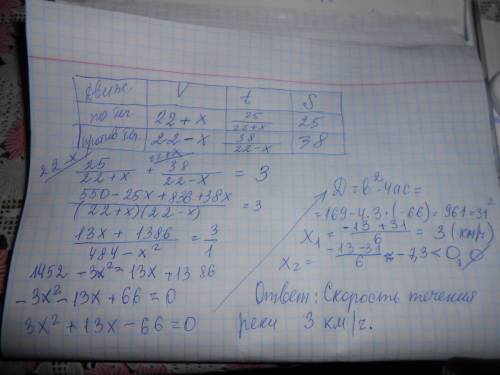 движ. V t S
по теч. 22+x 25/(22+x) 25
против теч. 22-x 38/(22-x) 38
22-x 22+x
25/(22+x) + 38/(22-x) = 3
(550-25x+836+38x)/((22+x)(22-x)) = 3
(13x+1386)/(484-x²) = 3/1
1452-3x²=13x+1386
-3x²-13x+66=0
3x²+13x-66=0
D=b²-4ac=
=169-4·3·(-66)=961=31²
x₁=(-13+31)/6 = 3 (км/ч)
x₂=(-13-31)/6 ≈ -7,3<0, ∅
Ответ: Скорость течения
реки 3 км/ч.